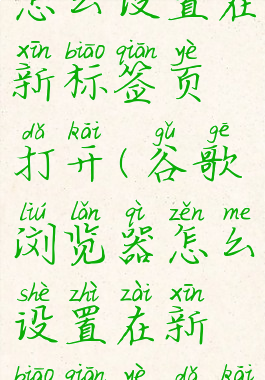 怎么设置在
xīn biāo qiān yè
新标签页
dǎ kāi gǔ gē
打开(谷歌
liú lǎn qì zěn me
浏览器怎么
shè zhì zài xīn
设置在新
biāo qiān yè dǎ kāi